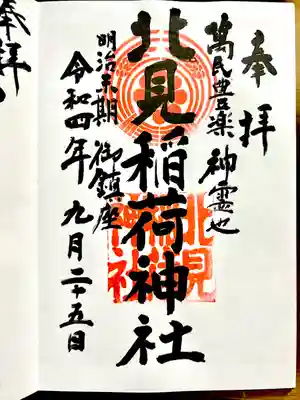 奉拝
萬民豊楽 神霊也
北見稲荷神社
明治末期 御鎮座
令和四年 九月二十五日
奉拝